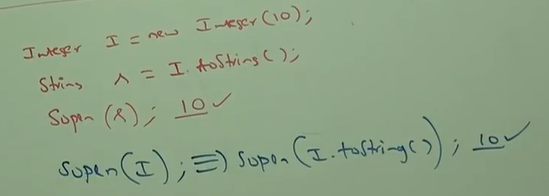 Integer I = new Integer(10);
String s = I.toString();
Sopln(s); 10 ✓
Sopln(I); ≡) Sopln(I.toString()); 10 ✓